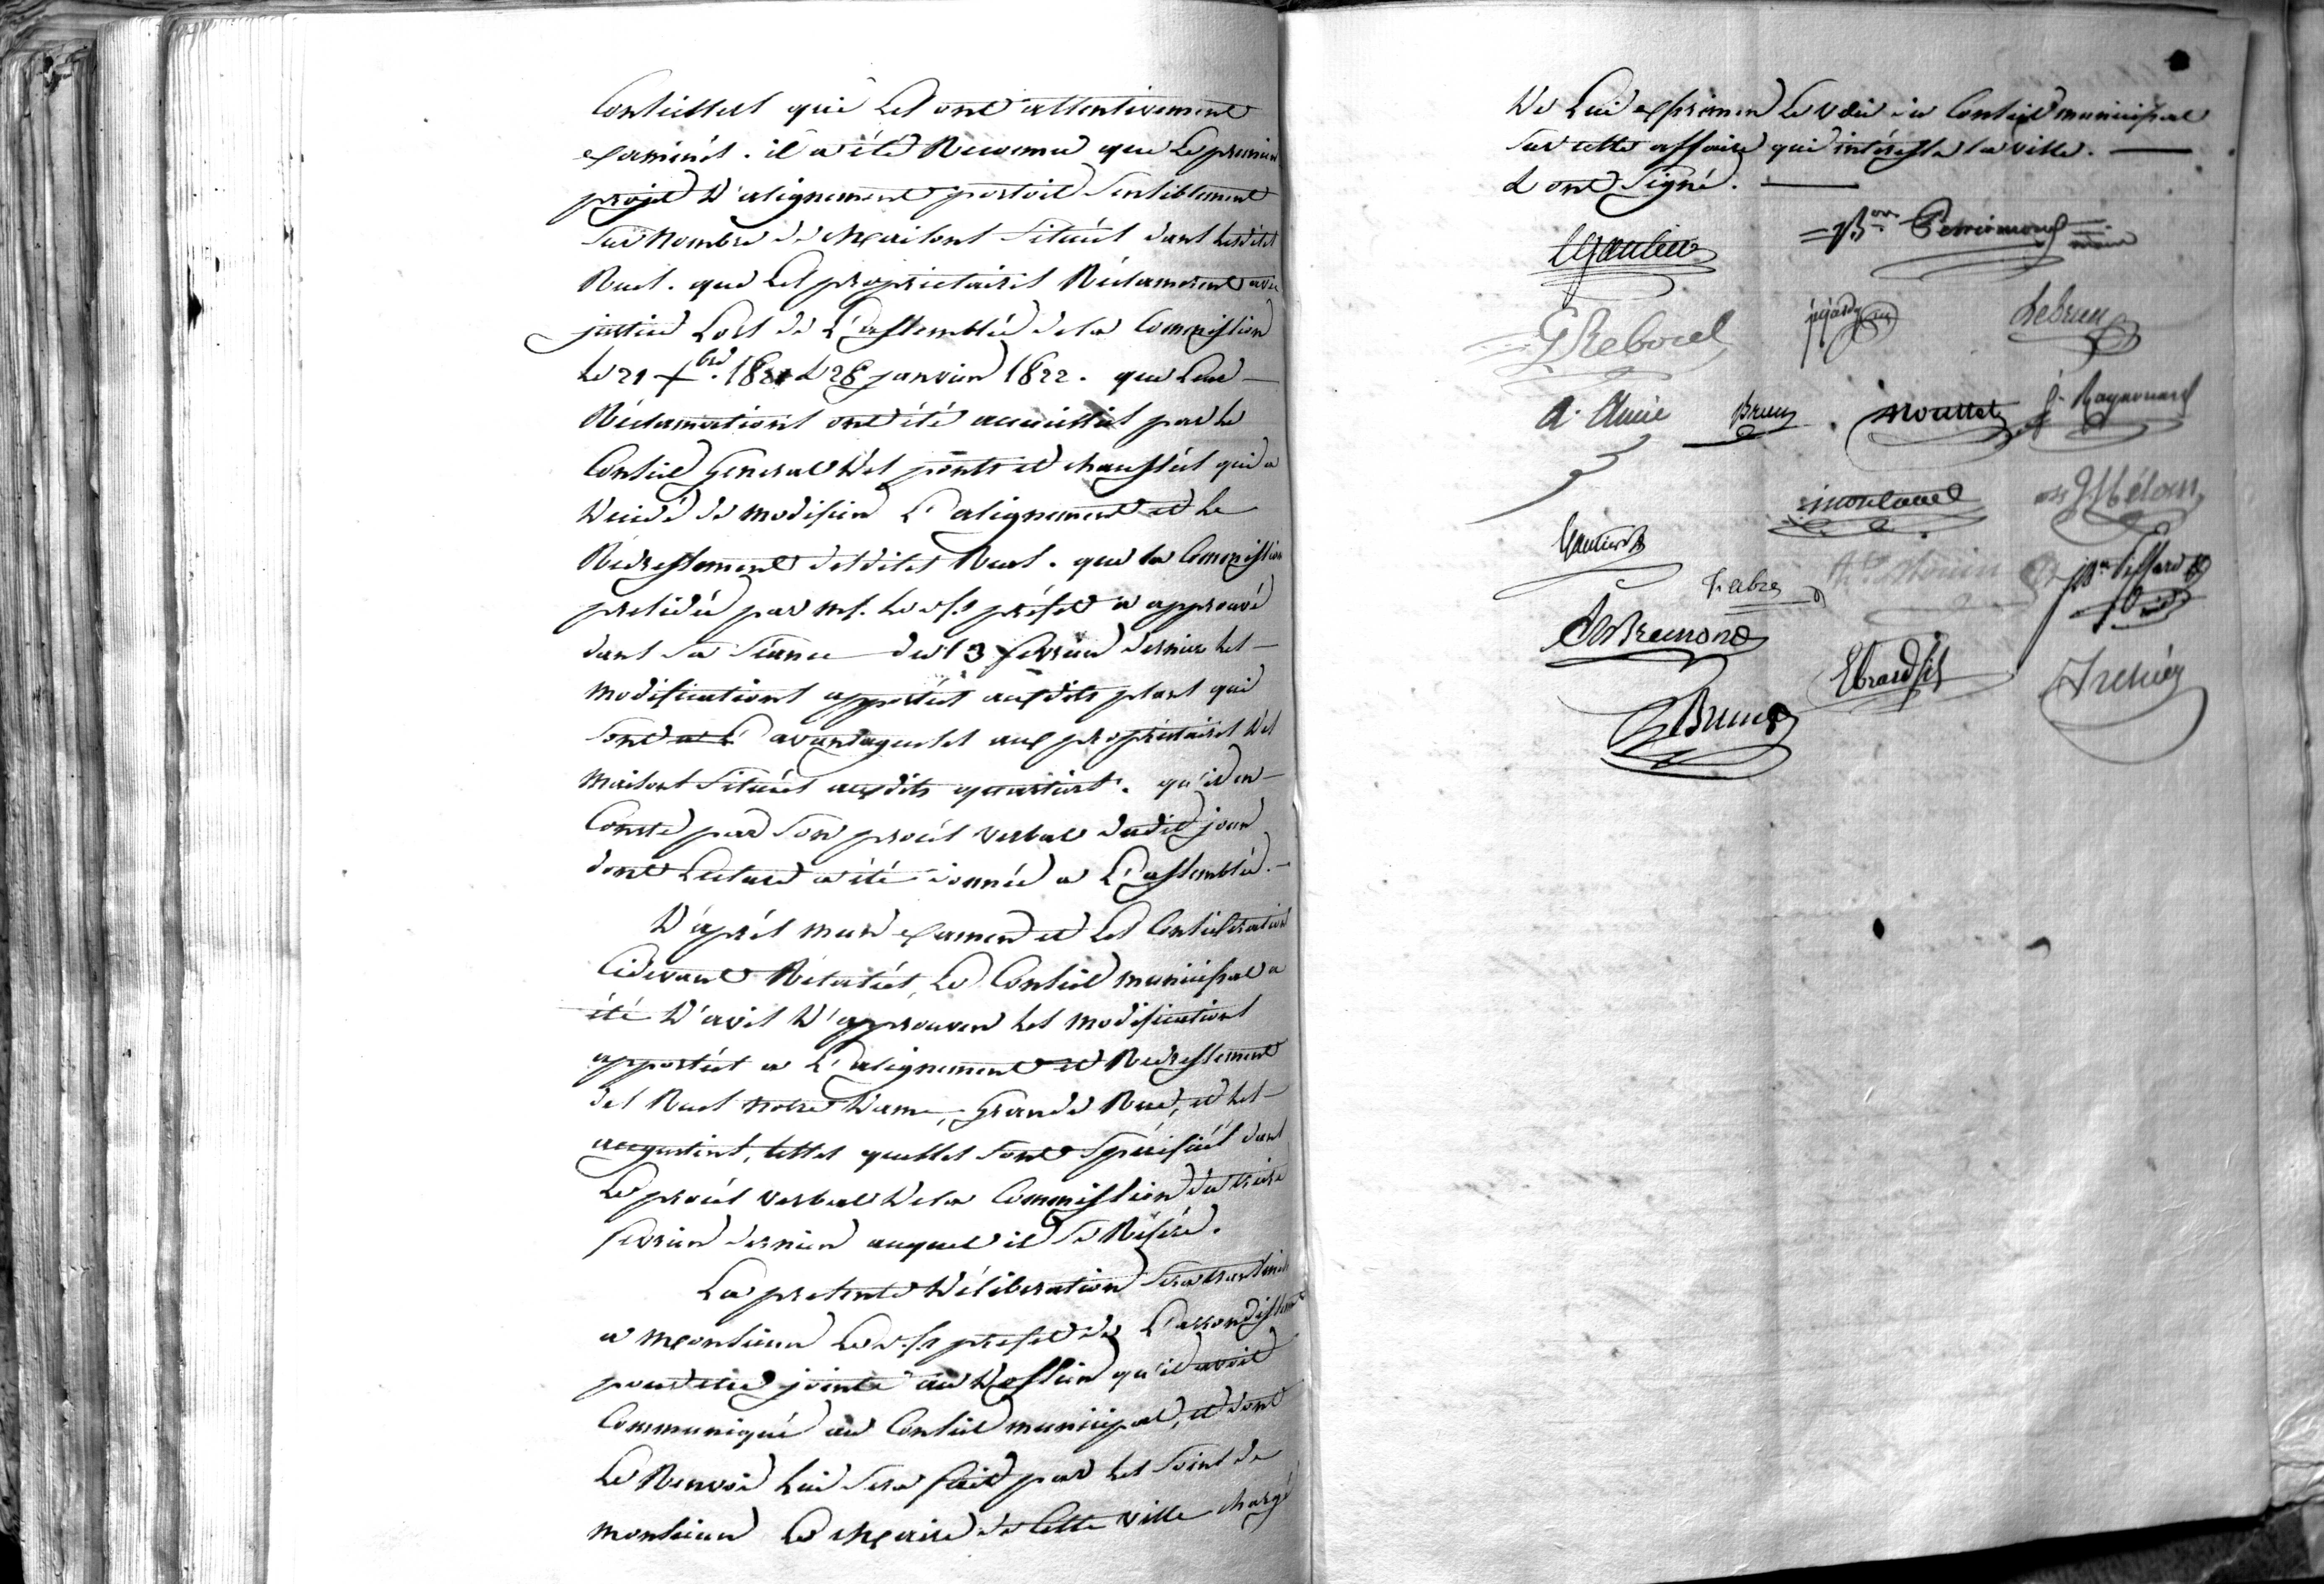 Conseillers qui les ont attentivement
examinés. il a été Reconnu que Le premier
projet D'alignement portoit sensiblement
sur Nombre de Maisons situées dans lesdites
Rues. que les proprietaires Réclamerent avec
justice Lors de L'assemblée de la Commission
Le 21 Xbre. 1821 & 28 janvier 1822. que Leur
Réclamations ont été accueillies par le
Conseil General des ponts et chaussées qui a
Décidé de modifier L'alignement et le
Redressement desdites Rues. que la Commission
présidée par Mr. Le ss préfet a approuvé
dans sa séance du 13 fevrier dernier les
modifications apportées auxdits plans qui
sont avantageuses aux propriétaires des
maisons situées auxdits quartiers. qu'il en
Conste par son procès verbal dudit jour
dont Lecture a été donnée a L'assemblée.
D'après mur examen et les Considerations
Cidevant Rélatées, Le Conseil municipal a
été D'avis D'approuver les modifications
apportées a L'alignement et Redressement
des Rues Notre Dame, Grande Rue, et les
augustins, telles quelles sont spécifiées dans
Le procès verbal De la Commission du treize
fevrier dernier auquel il se Réfère.
La presente Déliberation sera transmise
a Monsieur Le ss prefet de L'arrondissemt
pour être jointe au Dossier qu'il avoit
Communiqué au Conseil municipal, et dont
Le Renvoi lui sera fait par les soins de
Monsieur Le Maire de Cette ville chargé
De Lui exprimer Le vœu du Conseil municipal
sur cette affaire qui intéresse la ville.
& ont signé.
Bon Perrimond maire
G Reboul Lebrun
A. Aune Brun Mouttet J. Raynouard
Gautier
Fabre
Bremond
Ebrard fils
Brun